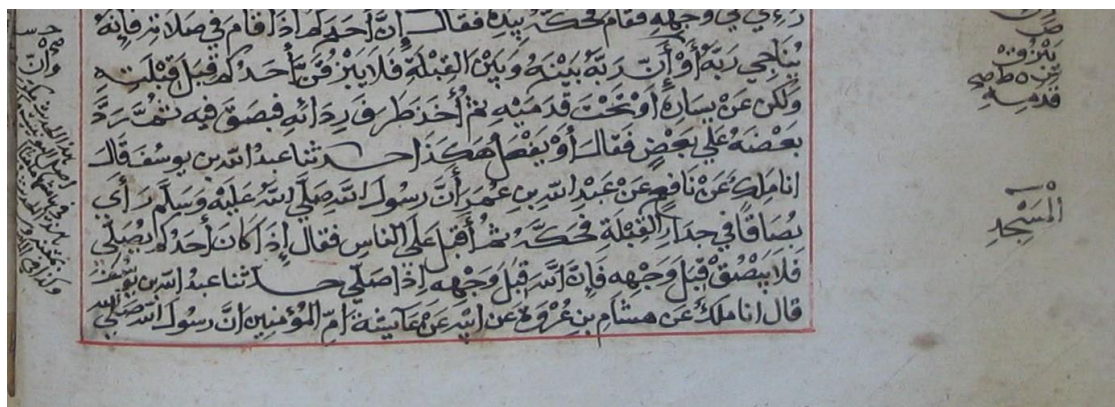 رءي في وجهه فقام فحكه بيده فقال إن أحدكم إذا قام في صلاته فإنه
يناجي ربه أو أن ربه بينه وبين القبلة فلا يبزقن أحدكم قبل قبلته
ولكن عن يساره أو تحت قدميه ثم أخذ طرف ردائه فبصق فيه ثم رد
بعضه على بعض فقال أو يفعل هكذا حدثنا عبد الله بن يوسف قال
انا ملك عن نافع عن عبد الله بن عمر أن رسول الله صلى الله عليه وسلم رأى
بصاقا في جدار القبلة فحكه ثم أقبل على الناس فقال إذا كان أحدكم يصلي
فلا يبصق قبل وجهه فإن الله قبل وجهه إذا صلى حدثنا عبد الله بن يوسف
قال انا ملك عن هشام بن عروة عن ابيه عن عايشة ام المؤمنين ان رسول الله صلى الله
يبزق
قدمه
المسجد